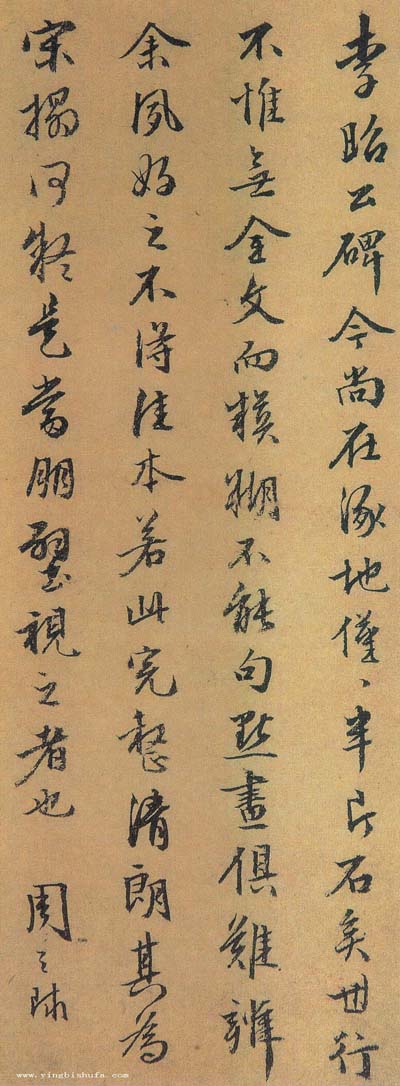 李昭公碑今尚在涿地僅、半片石矣世行
不惟無全文而模糊不能句點畫俱難辨
余夙好之不得佳本若此完整清朗其為
宋搨何疑是當朋璧視之者也 周之
www.yingbishufa.com